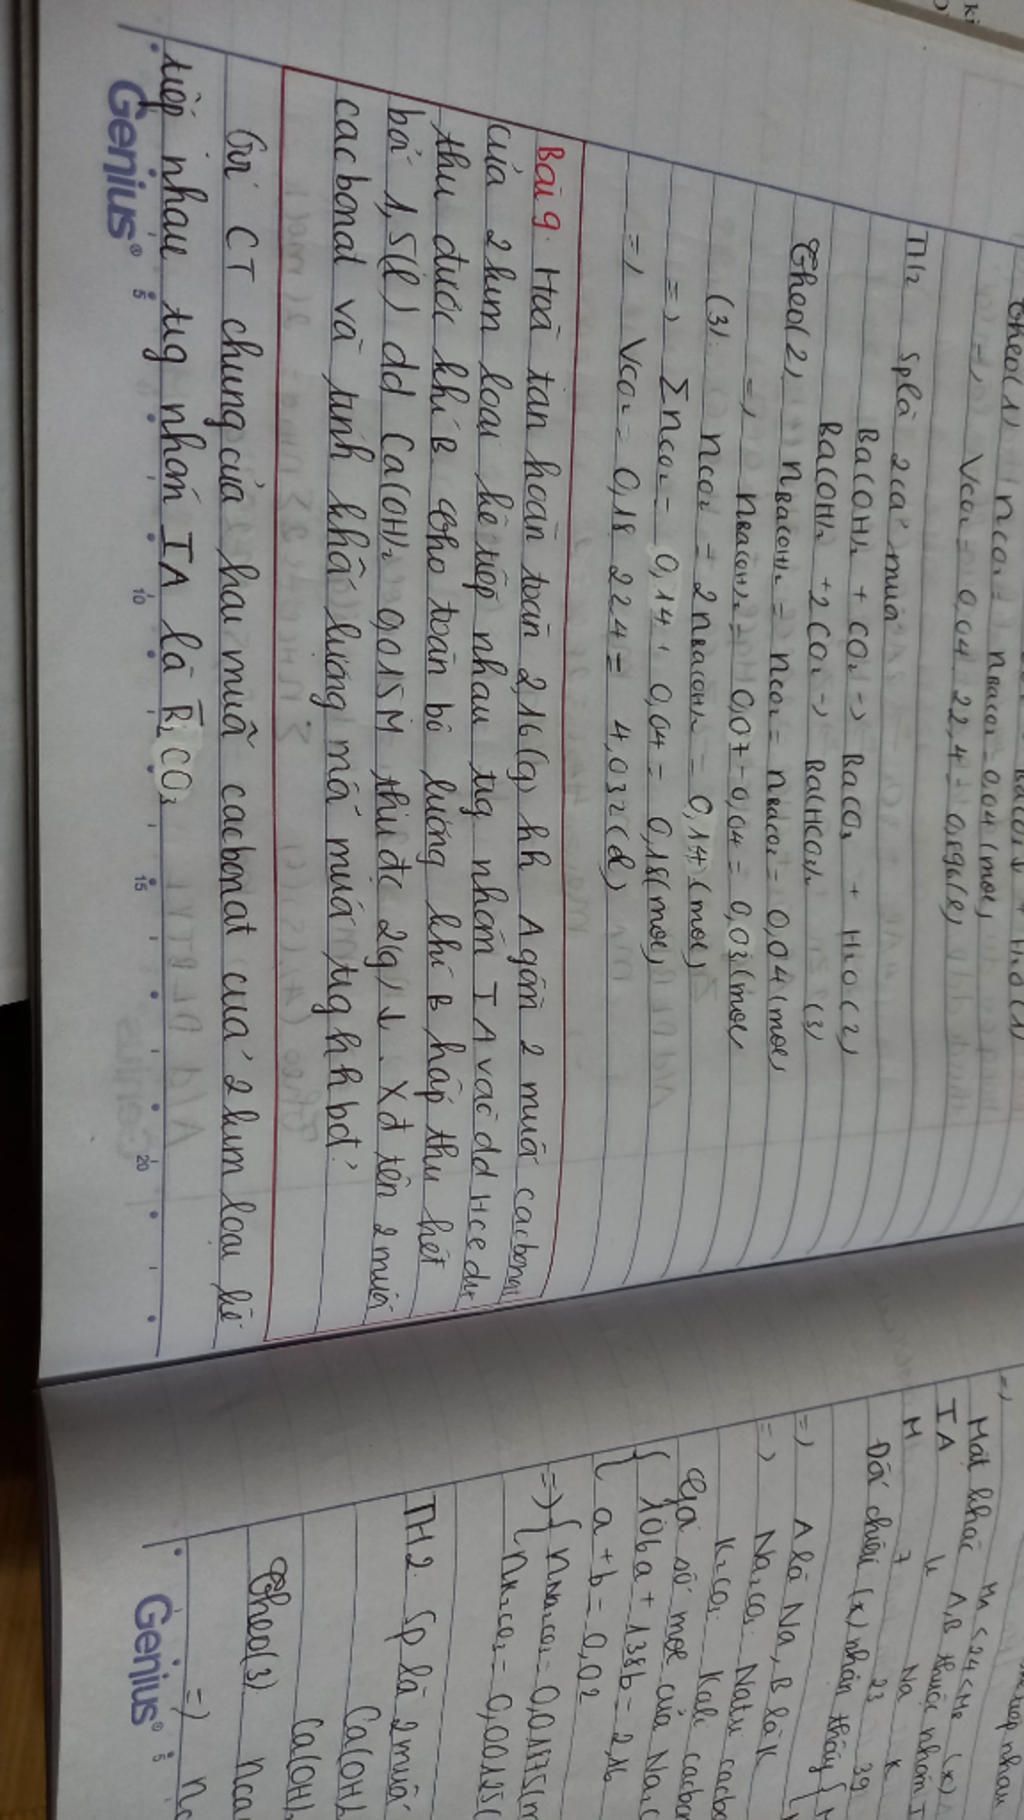 Theo(1) nCO₂ = nBaCO₃ = 0,04 (mol)
=) VCO₂ = 0,04 22,4 = 0,896 (l)
TH2 Sp là 2 cả muối
Ba(OH)₂ + CO₂ -> BaCO₃ + H₂O (2)
Ba(OH)₂ + 2CO₂ -> Ba(HCO₃)₂ (3)
Theo(2) nBa(OH)₂ = nCO₂ = nBaCO₃ = 0,04 (mol)
=) nBa(OH)₂ = 0,07 - 0,04 = 0,03 (mol)
(3): nCO₂ = 2nBa(OH)₂ = 0,14 (mol)
=) ΣnCO₂ = 0,14 + 0,04 = 0,18 (mol)
=) VCO₂ = 0,18 22 4 = 4,032 (l)
Bài 9. Hoà tan hoàn toàn 2,16(g) hh A gồm 2 muối cacbonat
của 2 kim loại kế tiếp nhau tg nhóm IA vào dd HCl dư
thu được khí B Cho toàn bộ lượng khí B hấp thu hết
bởi 1,5(l) dd Ca(OH)₂ 0,015M thu đc 2(g)↓. Xđ tên 2 muối
cacbonat và tính khối lượng mỗi muối tg hh bđ?
Gọi CT chung của hai muối cacbonat của 2 kim loại kế
tiếp nhau tg nhóm IA là R̅₂CO₃
Genius® 5 10 15 20
=)
Mặt khác
IA
M 7 23 39
Li Na K
Đối chiếu (x) nhận thấy {
=) A là Na, B là K
=) Na₂CO₃ Natri cacbo
K₂CO₃ Kali cacbon
Gọi số mol của Na₂C
{ 106a + 138b = 2,16
a + b = 0,02
=) { nNa₂CO₃ = 0,01875 (m
nK₂CO₃ = 0,00125 (
TH2. Sp là 2 muối
Ca(OH)₂
Ca(OH)₂
Theo(3) nCa
=) n
Genius® 5